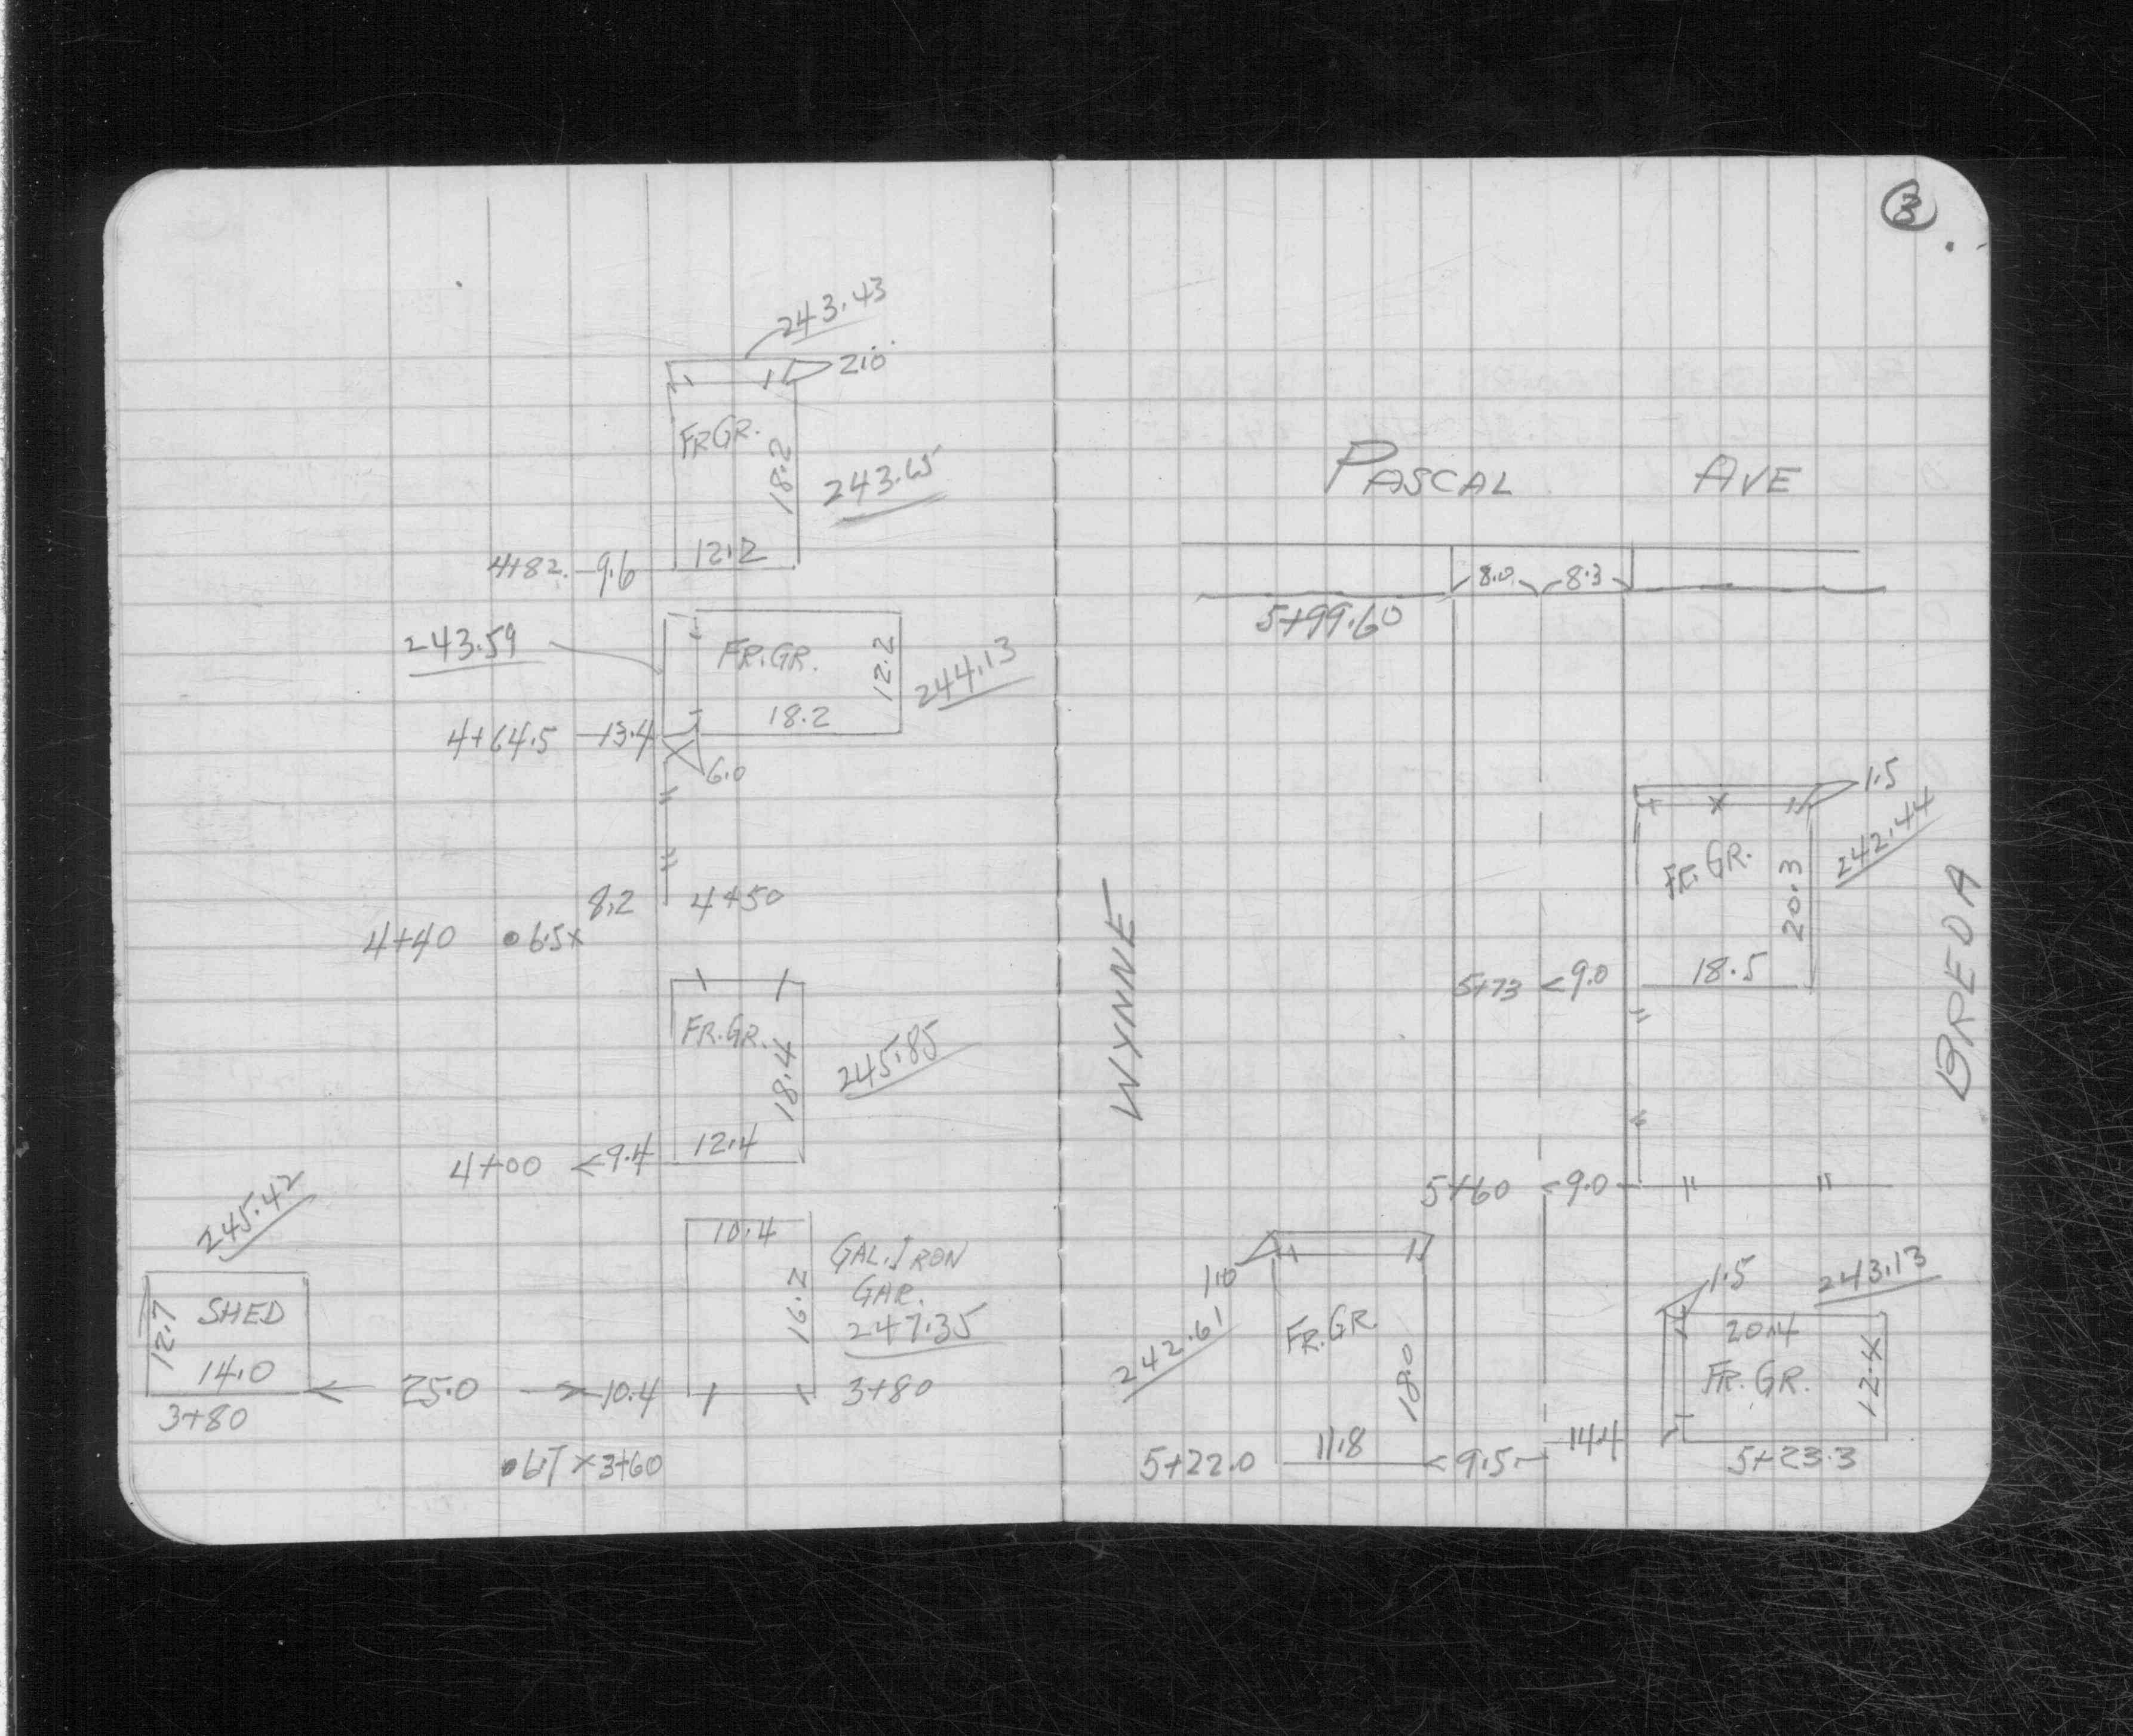 243.43
2.0
FR GR.
18.2
243.65
4+82. 9.6 12.2
243.59
FR. GR.
12.2
244.13
18.2
4+64.5 13.4
6.0
8.2 4+50
4+40 6.5x
FR. GR.
18.4
245.85
4+00 <9.4 12.4
245.42
10.4
GAL. IRON
GAR.
16.2
247.35
SHED
12.7
14.0
25.0 10.4 3+80
3+80
6.7 x 3+60
3
PASCAL AVE
8.0 8.3
5+99.60
WYNNE
BREDA
1.5
242.44
FR. GR.
20.3
18.5
5+73 <9.0
5+60 <9.0
1.0
242.61
FR. GR
18.0
11.8
5+22.0 <9.5
14.4
1.5
243.13
20.4
FR. GR.
12.4
5+23.3